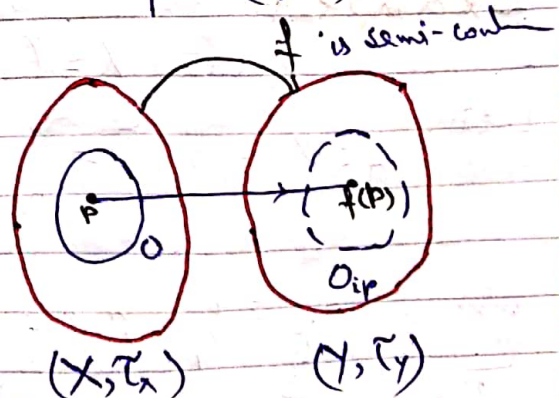 f is semi-cont
P
f(P)
O
O_{ip}
(X, τ_x)
(Y, τ_y)